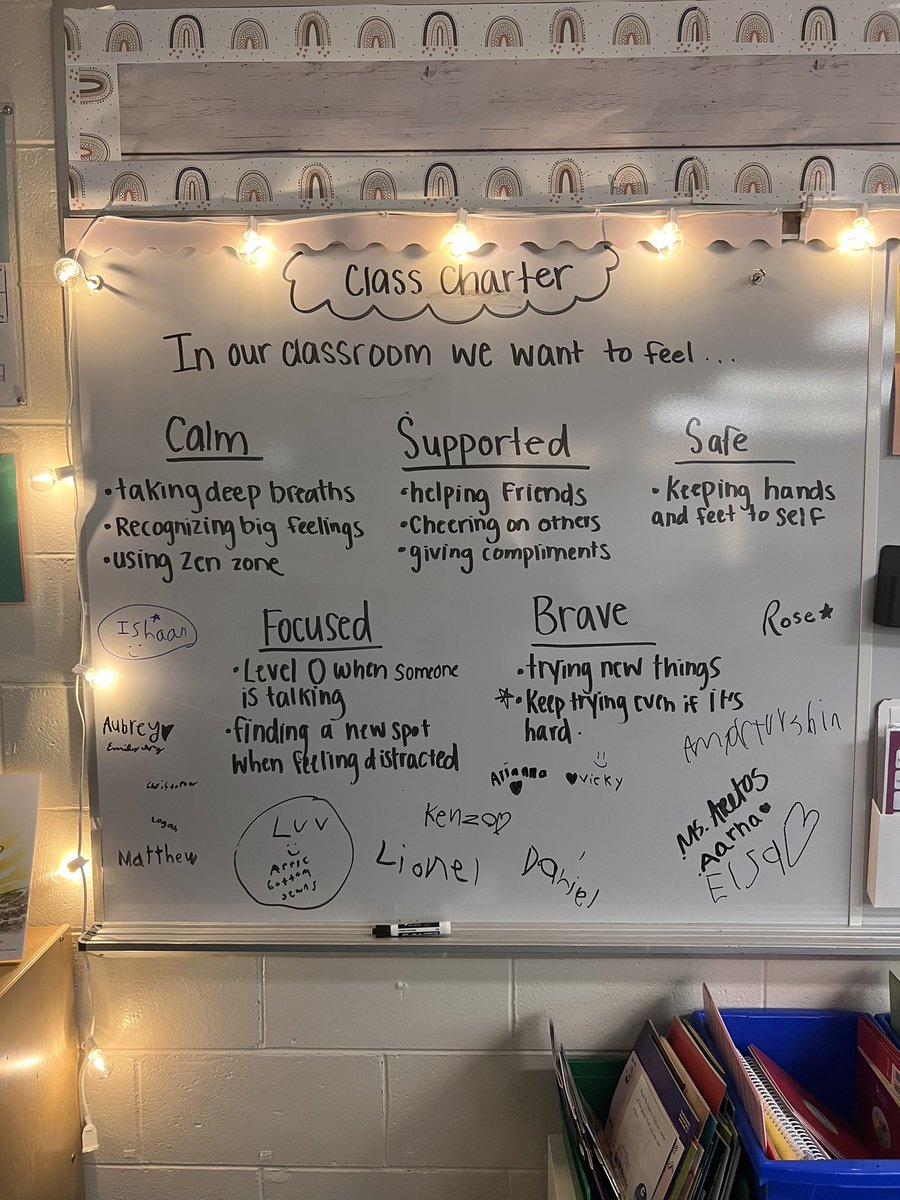 Class Charter
In our classroom we want to feel...
Calm
• taking deep breaths
• Recognizing big feelings
• using Zen zone
Supported
• helping Friends
• Cheering on others
• giving compliments
Safe
• Keeping hands
and feet to self
Focused
• Level 0 when someone
is talking
• finding a new spot
when feeling distracted
Brave
• trying new things
• Keep trying even if it's
hard.
Ishaan
Rose
Aubrey
Logan
Matthew
Luv
bottom
Arianna
Vicky
Kenzo
Lionel
Daniel
Ms.
Aarna
Elsa